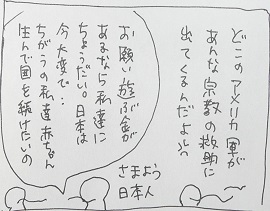 どこのアメリカ軍が
あんな宗教の救助に
出てくるんだよ
お願い遊ぶ金が
あるなら私達に
ちょうだい。日本は
今大変で…
ちがうの私達赤ちゃん
生んで国を続けたいの
さまよう
日本人